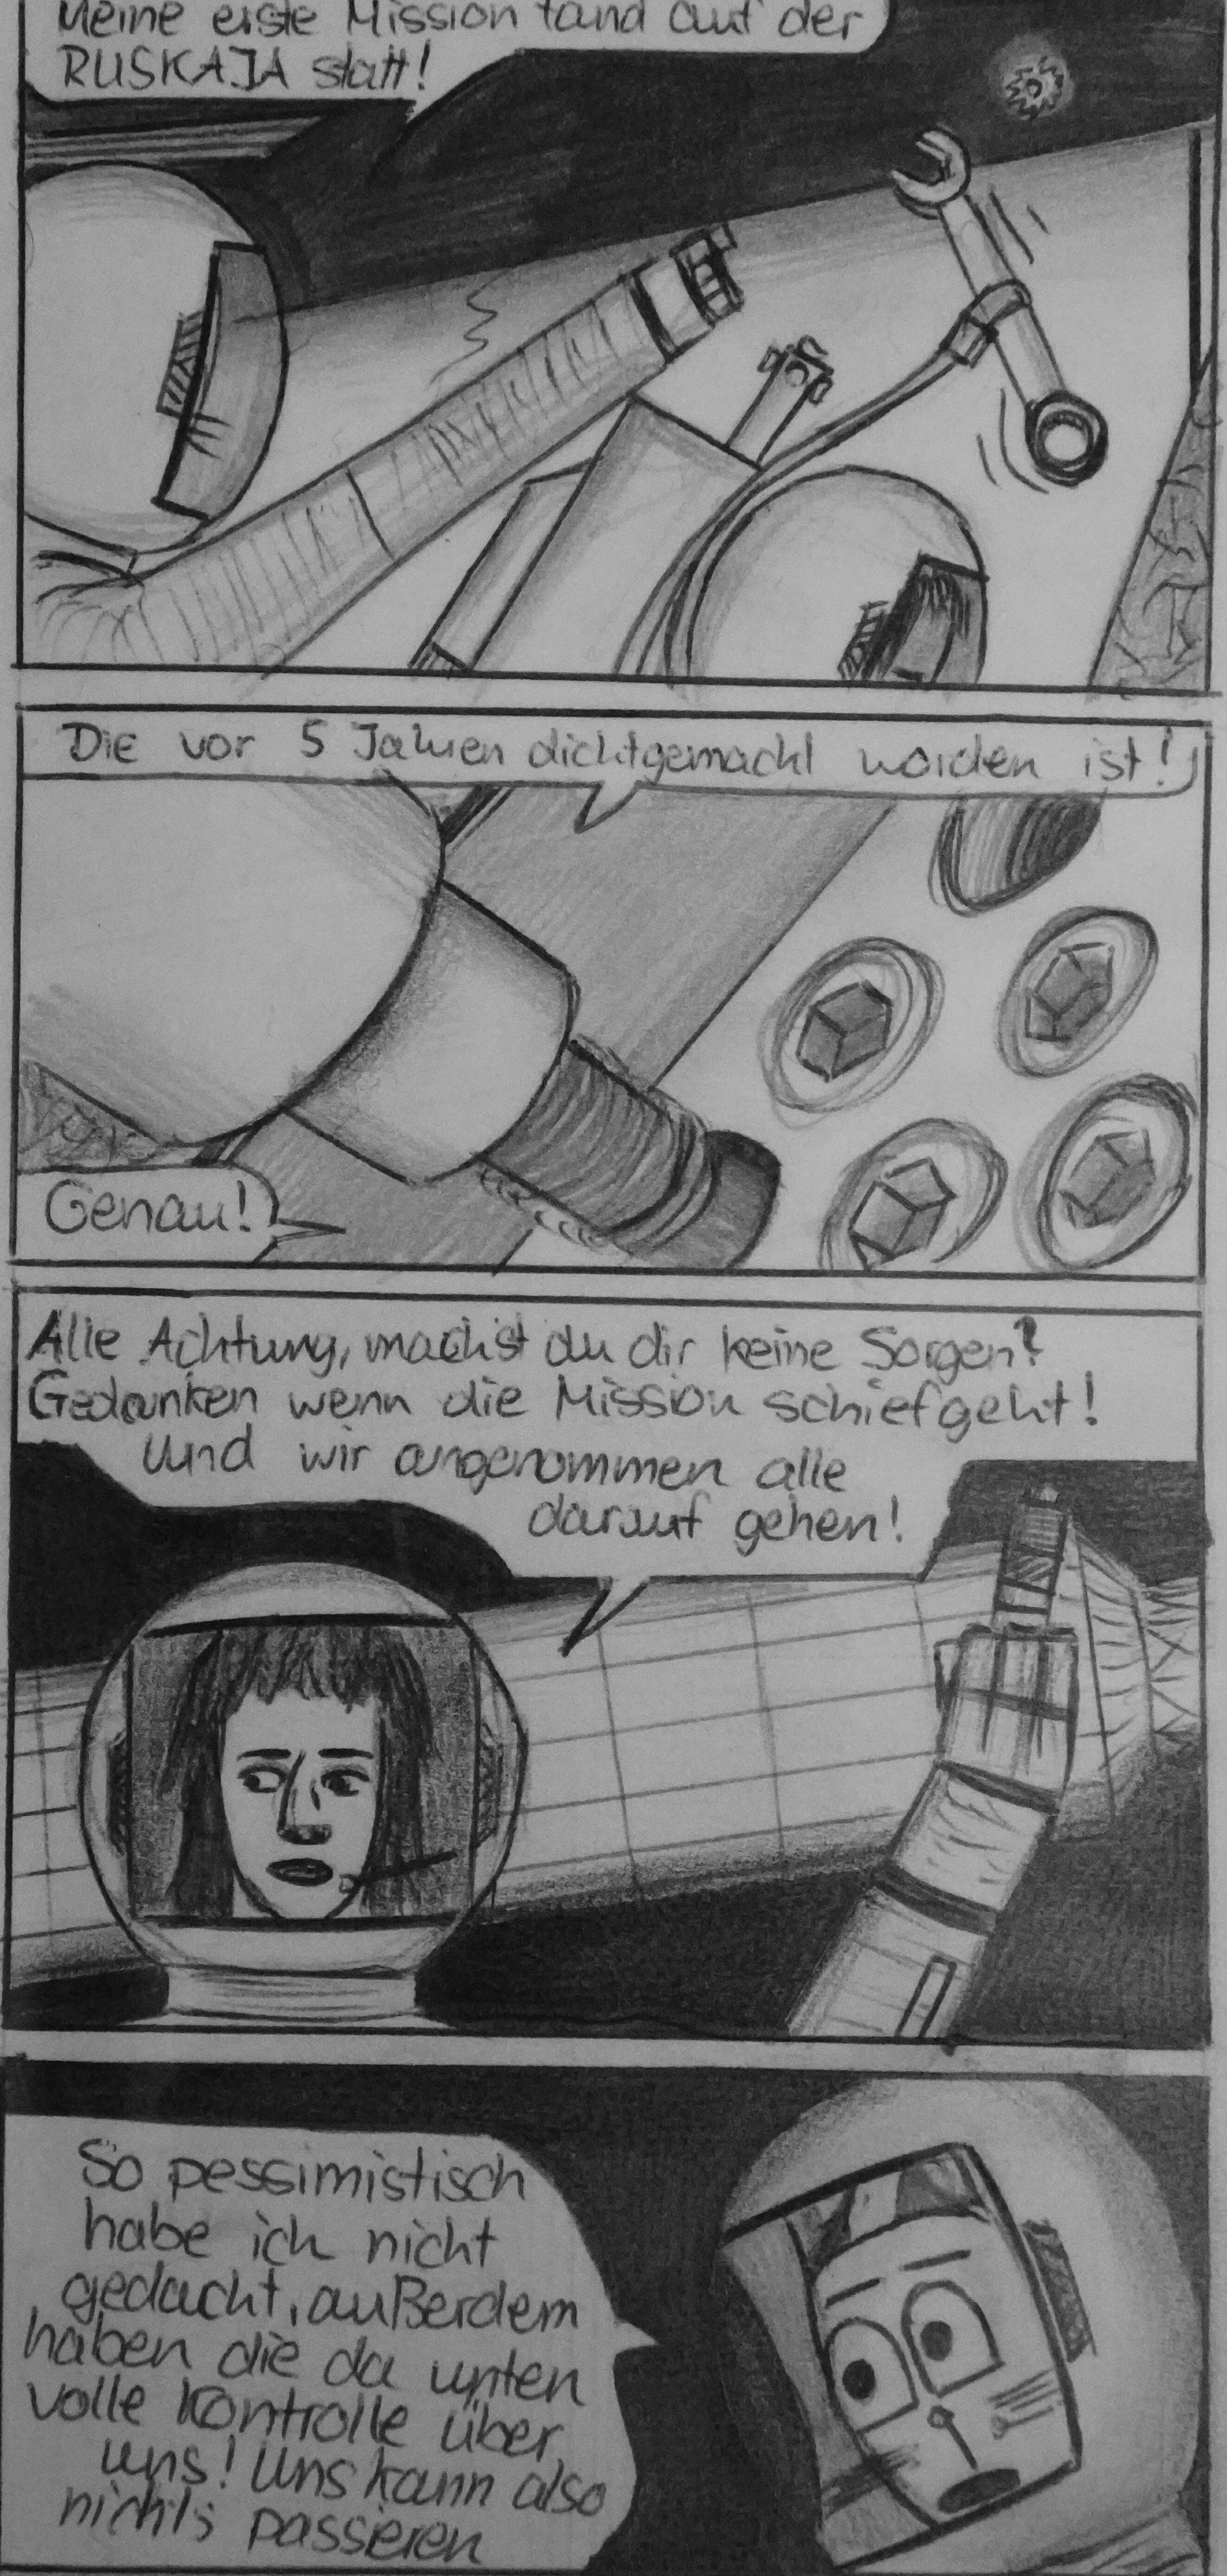 Meine erste Mission fand auf der
RUSKAJA statt!
Die vor 5 Jahren dichtgemacht worden ist!
Genau!
Alle Achtung, machst du dir keine Sorgen?
Gedanken wenn die Mission schiefgeht!
und wir angenommen alle
darauf gehen!
So pessimistisch
habe ich nicht
gedacht, außerdem
haben die da unten
volle Kontrolle über
uns! Uns kann also
nichts passieren